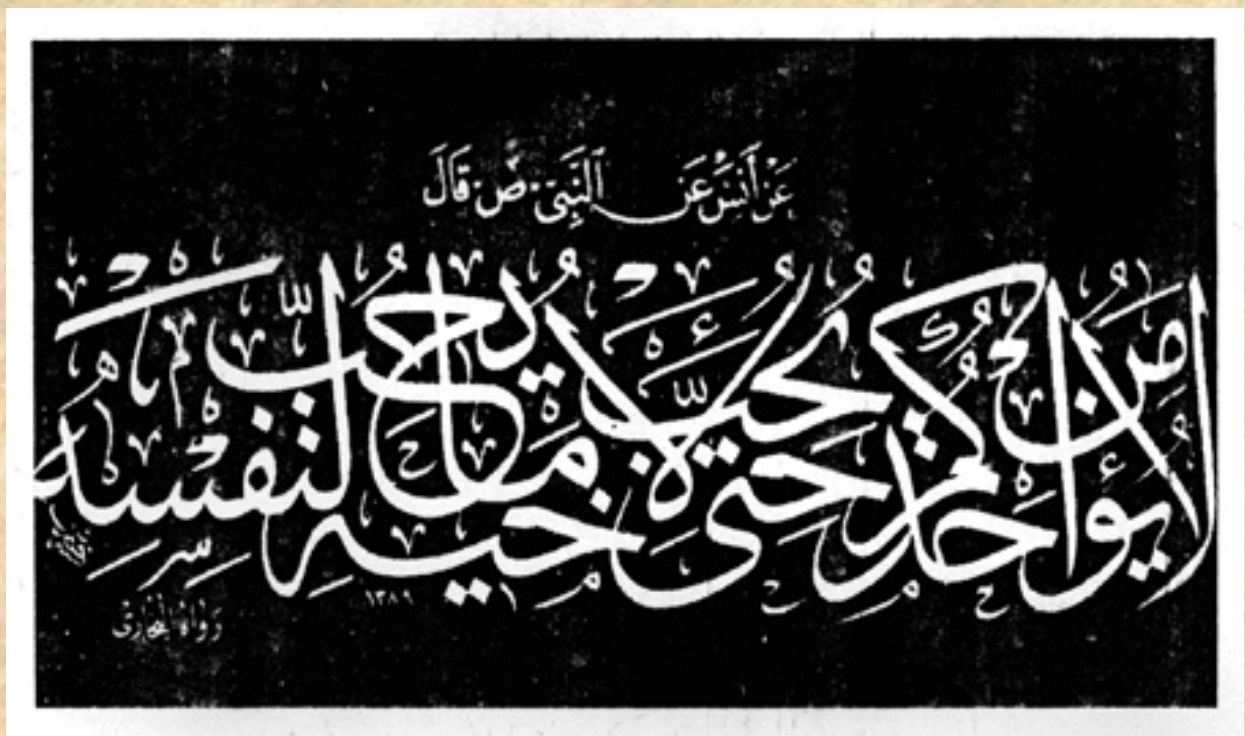 عَنْ أَنَسٍ عَنِ النَّبِيِّ ص قَالَ
لَا يُؤْمِنُ أَحَدُكُمْ حَتَّى يُحِبَّ لِأَخِيهِ مَا يُحِبُّ لِنَفْسِهِ
١٣٨٩
رَوَاهُ الْبُخَارِي